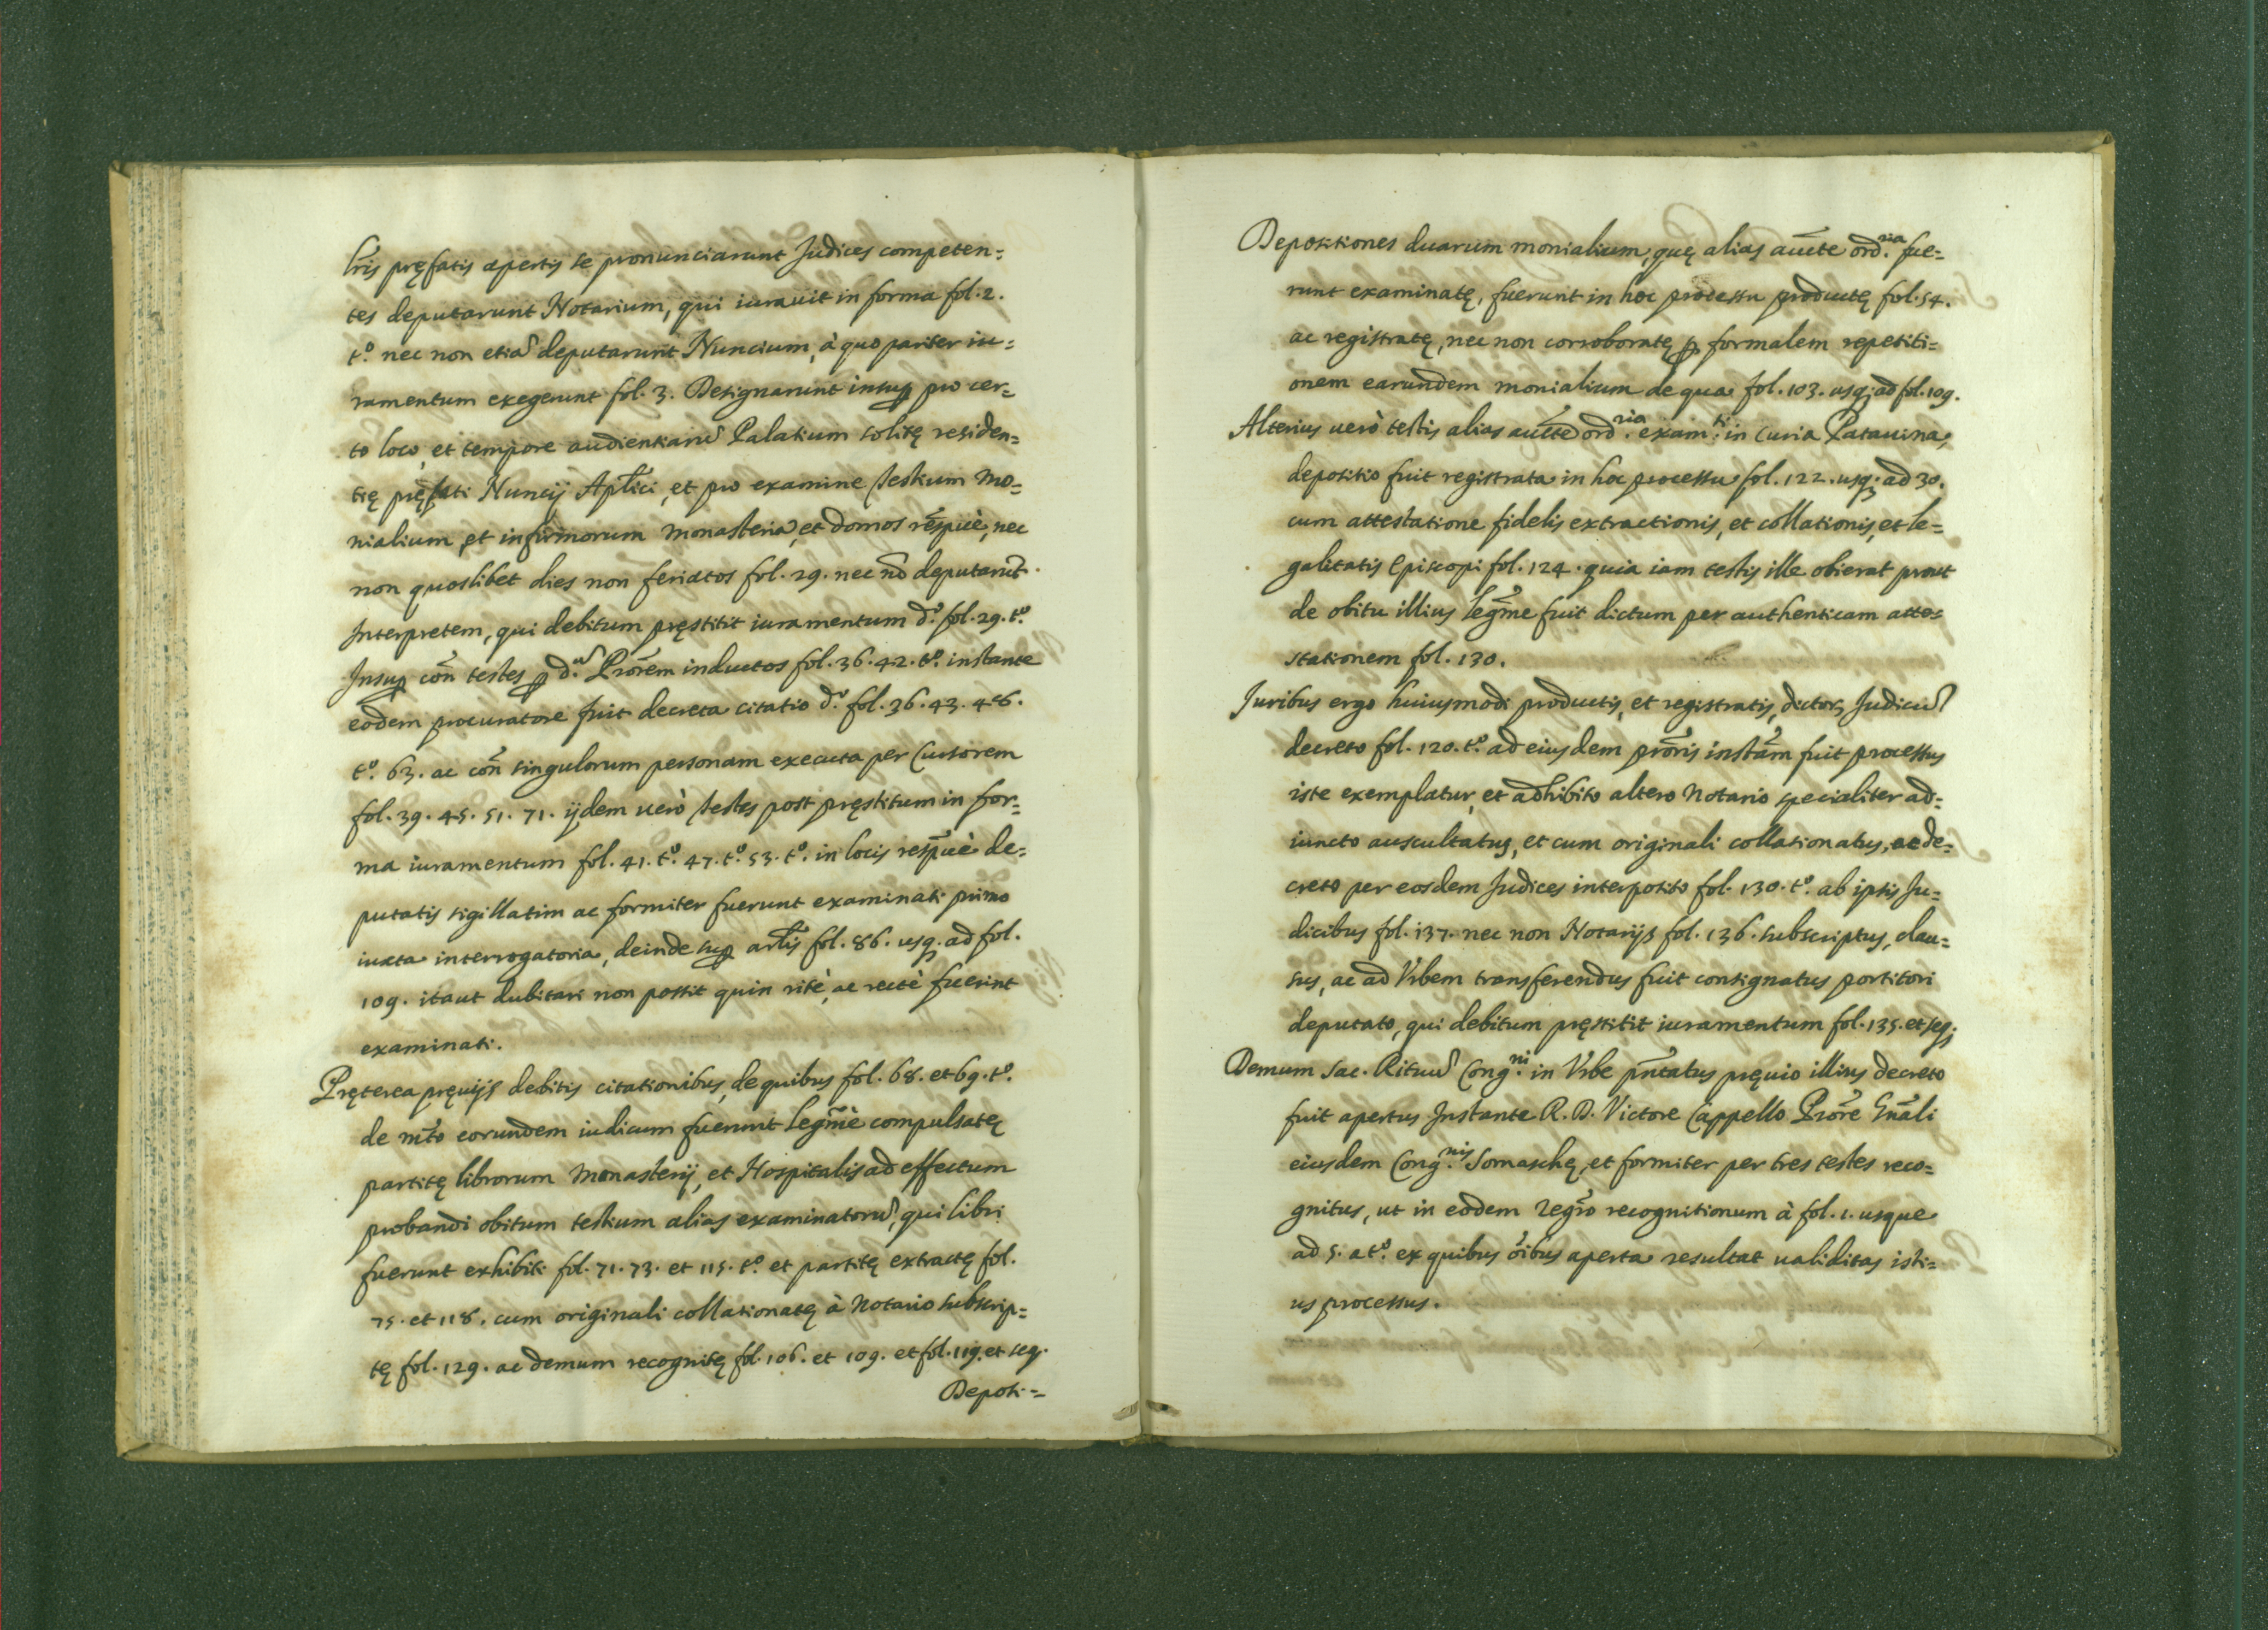 lr̃is pręfatis apertis se pronunciarunt Judices competen=
tes deputarunt Notarium, qui iurauit in forma fol. 2.
t.º nec non etia᷉ deputarunt Nuncium, à quo pariter iu=
ramentum exegerunt fol. 3. Designarunt insuꝑ pro cer=
to loco, et tempore audientiaru᷉ Palatium solitę residen=
tię pręfati Nuncij Apl̃ici, et pro examine testium Mo=
nialium, et infirmorum Monasteria, et domos respu᷉è, nec
non quoslibet dies non feriatos fol. 29. nec no᷉ deputaru᷉t
Interpretem, qui debitum pręstitit iuramentum d.º fol. 29. t.º
Insuꝑ con᷉ testes ꝑ d.ᵘ᷉ Pror᷉em inductos fol. 36. 42. t.º instante
eodem procuratore fuit decreta citatio d.º fol. 36. 43. 48.
t.º 63. ac con᷉ singulorum personam executa per Cursorem
fol. 39. 45. 51. 71. ijdem uerò testes post pręstitum in for=
ma iuramentum fol. 41. t.º 47. t.º 53. t.º in locis respu᷉è de=
putatis sigillatim ac formiter fuerunt examinati primo
iuxta interrogatoria, deinde suꝑ artl̃is fol. 86. usq. ad fol.
109. itaut dubitari non possit quin ritè, ac rectè fuerint
examinati.
Pręterea pręuijs debitis citationibus, de quibus fol. 68. et 69. t.º
de m᷉to eorundem iudicum fuerunt legm᷉è compulsatę
partitę librorum Monasterij, et Hospitalis ad effectum
probandi obitum testium alias examinatoru᷉, qui libri
fuerunt exhibiti fol. 71. 73. et 115. t.º et partitę extractę fol.
75. et 118. cum originali collationatę à Notario subscrip=
tę fol. 129. ac demum recognitę fol. 106. et 109. et fol. 119. et seq.
Deposi=
Depositiones duarum monialium, quę alias auc᷉te ord.ʳⁱᵃ fue=
runt examinatę, fuerunt in hoc processu productę fol. 54.
ac registratę, nec non corroboratę ꝑ formalem repetiti=
onem earundem monialium de qua fol. 103. usq; ad fol. 109.
Alterius uerò testis alias auc᷉te ord.ʳⁱᵃ exam.ᵗⁱ in Curia Patauina,
depositio fuit registrata in hoc processu fol. 122. usq. ad 30.
cum attestatione fidelis extractionis, et collationis, et le=
galitatis Episcopi fol. 124. quia iam testis ille obierat prout
de obitu illius legm᷉e fuit dictum per authenticam atte=
stationem fol. 130.
Juribus ergo huiusmodi productis, et registratis, dictoꝝ Judicu᷉
decreto fol. 120. t.º ad eiusdem pror᷉is instam᷉ fuit processus
iste exemplatur, et adhibito altero Notario specialiter ad=
iuncto auscultatus, et cum originali collationatus, ac de=
creto per eosdem Judices interposito fol. 130. t.º ab ipsis Ju=
dicibus fol. 137. nec non Notarijs fol. 136. subscriptus, clau=
sus, ac ad Vrbem transferendus fuit consignatus portitori
deputato, qui debitum pręstitit iuramentum fol. 135. et seq;
Demum Sac. Rituu᷉ Cong.ⁿⁱ in Vrbe pn᷉tatus pręuio illius decreto
fuit apertus Instante R. D. Victore Cappello Pror᷉e Gn᷉ali
eiusdem Cong.ⁿⁱˢ Somaschę, et formiter per tres testes reco=
gnitus, ut in eodem regr᷉o recognitionum à fol. 1. usque
ad 5. a t.º ex quibus oi᷉bus aperta resultat ualiditas isti=
us processus.